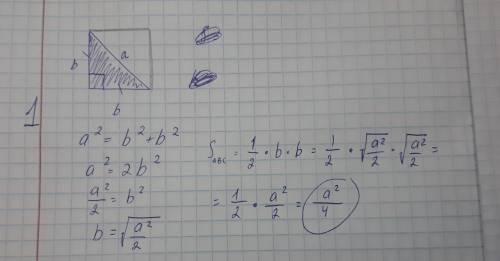 1
a
b
b
a² = b² + b²
a² = 2b²
a²/2 = b²
b = √(a²/2)
S_ABC = 1/2 · b · b = 1/2 · √(a²/2) · √(a²/2) =
= 1/2 · a²/2 = a²/4